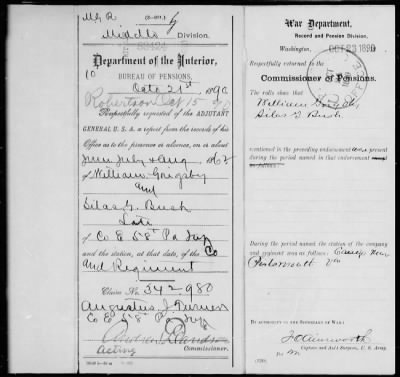 M.G.R.
(3-071.)
Middle Division.
Department of the Interior,
BUREAU OF PENSIONS,
Octo 21st, 1890
Robertson Oct 15
Respectfully requested of the ADJUTANT
GENERAL U. S. A. a report from the records of his
Office as to the presence or absence, on or about
June July & Aug, 1862
of William Grigsby
and
Silas G. Bush
Late
of Co E 58" Pa Inf
and the station, at that date, of the Co
and Regiment
Claim No. 342-980
Augustus J. Turner
Co E 58" P Inf
Acting Commissioner.
War Department,
Record and Pension Division,
Washington, OCT 23 1890
Respectfully returned to the
Commissioner of Pensions.
The rolls show that
William Grigsby
Silas G Bush
mentioned in the preceding endorsement
during the period named in that endorsement
as follows:
During the period named the station of the company
and regiment was as follows: Camp near
Portsmouth Va
BY AUTHORITY OF THE SECRETARY OF WAR:
F. C. Ainsworth
Captain and Ass't Surgeon, U. S. Army